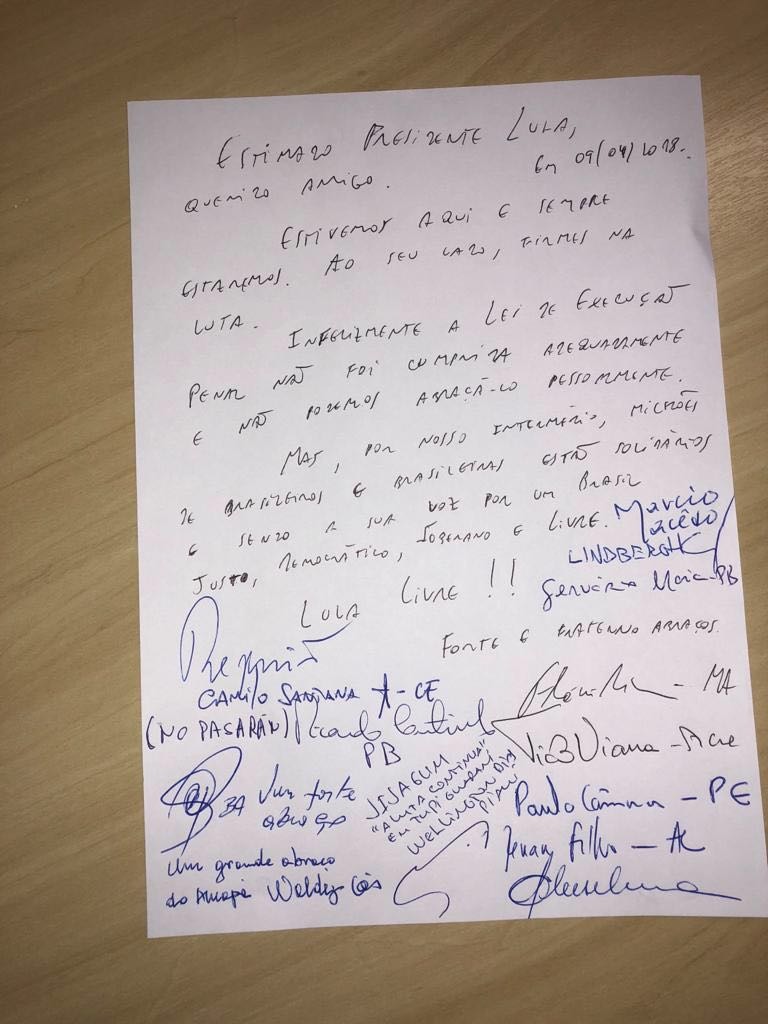 ESTIMADO PRESIDENTE LULA,
QUERIDO AMIGO. Em 09/04/2018.
ESTIVEMOS AQUI E SEMPRE
ESTAREMOS. AO SEU LADO, FIRMES NA
LUTA.
INFELIZMENTE A LEI DE EXECUÇÃO
PENAL NÃO FOI CUMPRIDA ADEQUADAMENTE
E NÃO PODEMOS ABRAÇÁ-LO PESSOALMENTE.
MAS, POR NOSSO INTERMÉDIO, MILHÕES
DE BRASILEIROS E BRASILEIRAS ESTÃO SOLIDÁRIOS
E SENDO A SUA VOZ POR UM BRASIL
JUSTO, DEMOCRÁTICO, SOBERANO E LIVRE.
Marcio
Macêdo
LINDBERGH
Gervásio Maia-PB
LULA LIVRE !!
FORTE E FRATERNO ABRAÇOS.
Requião
CAMILO SANTANA - CE
Flávio Dino - MA
(NO PASARÁN) Ricardo Coutinho
PB
Tião Viana - Acre
JAJAGUM
"A LUTA CONTINUA"
EM TUPI GUARANI
WELLINGTON DIAS
PIAUÍ
BA Um forte
abraço
Paulo Câmara - PE
Renan Filho - AL
Um grande abraço
do Amapá Waldez Góes